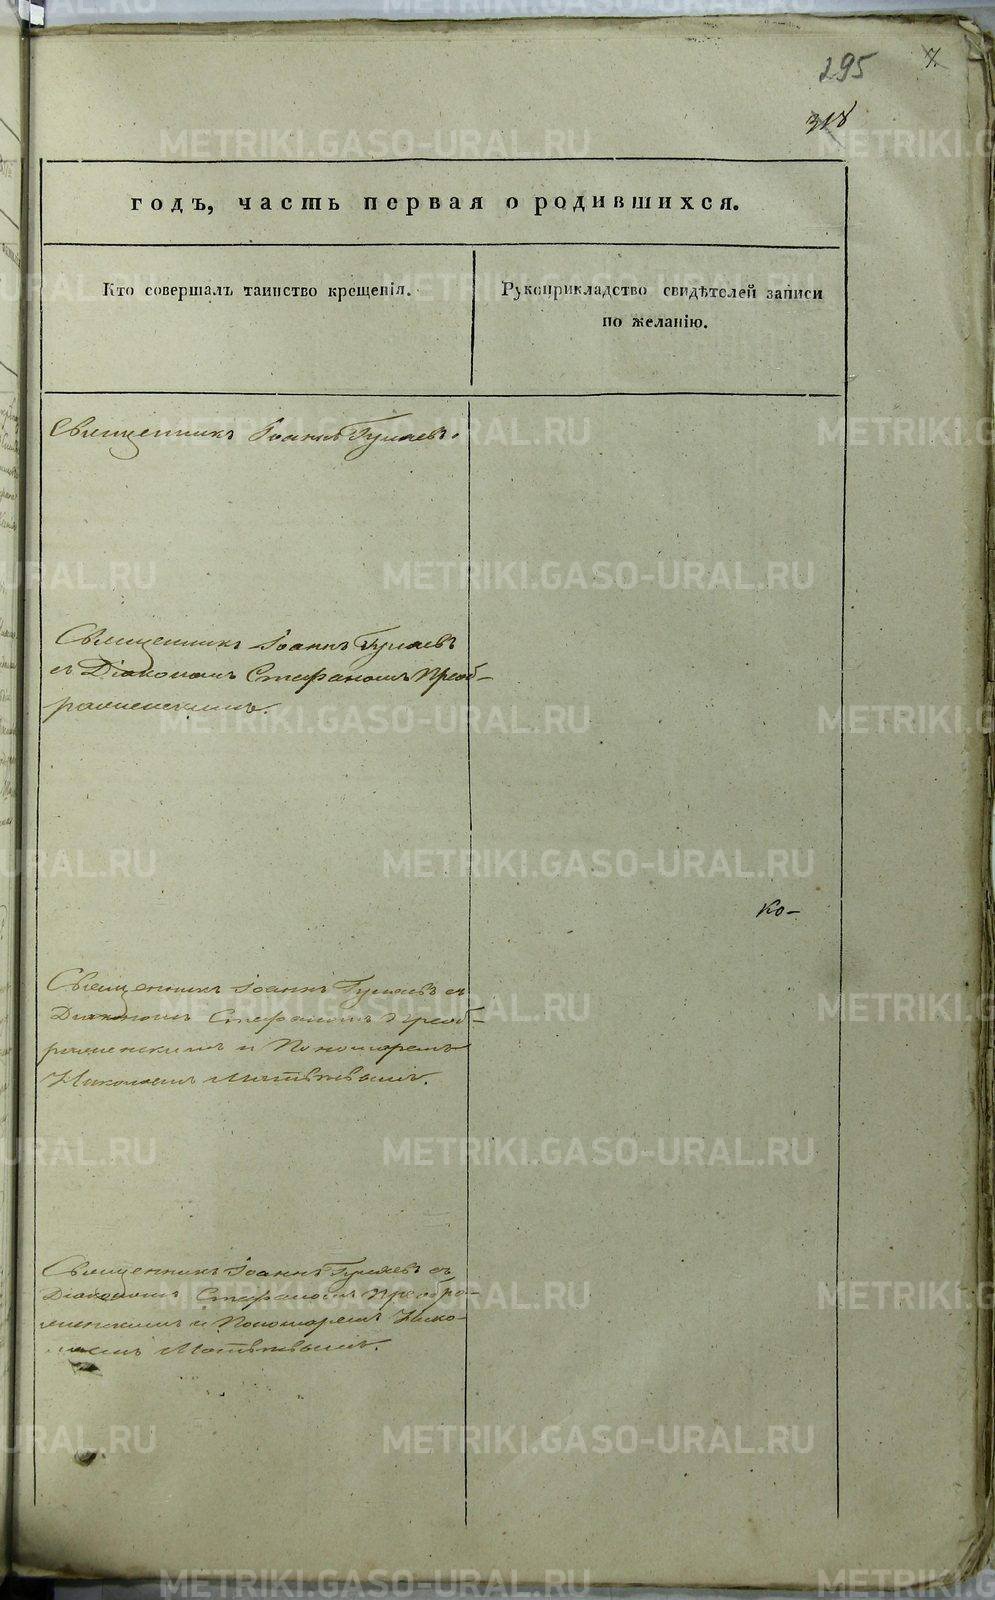 295
7.
318
годъ, часть первая о родившихся.
Кто совершалъ таинство крещенія.
Рукоприкладство свидѣтелей записи
по желанію.
Священникъ Іоаннъ Гуляевъ.
Священникъ Іоаннъ Гуляевъ
съ Діакономъ Стефаномъ Преоб-
раженскимъ.
Ко-
Священникъ Іоаннъ Гуляевъ съ
Діакономъ Стефаномъ Преоб-
раженскимъ и Пономаремъ
Николаемъ
Священникъ Іоаннъ Гуляевъ съ
Діакономъ Стефаномъ Преобра-
женскимъ и Пономаремъ Нико-
лаемъ
METRIKI.GASO-URAL.RU